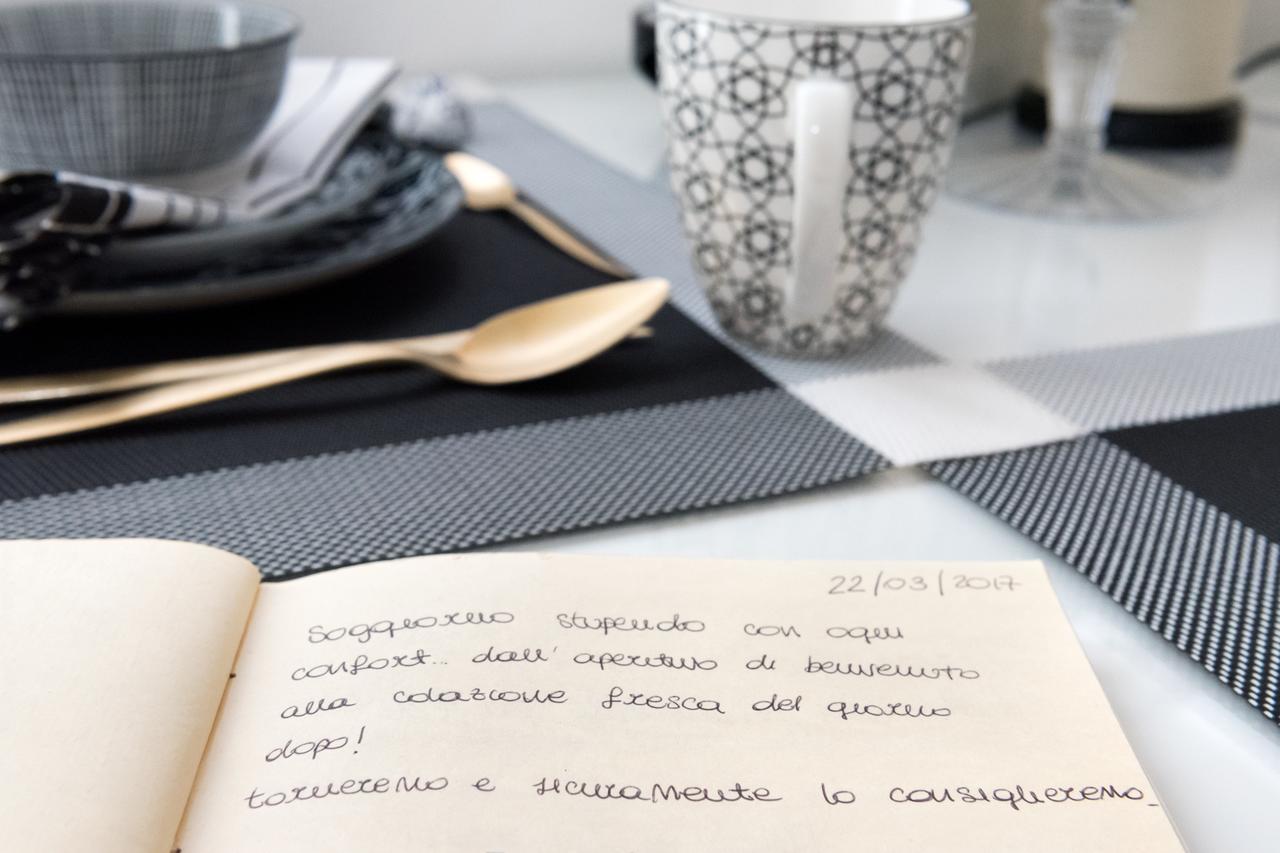 22/03/2017
Soggiorno stupendo con ogni
confort... dall' aperitivo di benvenuto
alla colazione fresca del giorno
dopo!
torneremo e sicuramente lo consiglieremo_